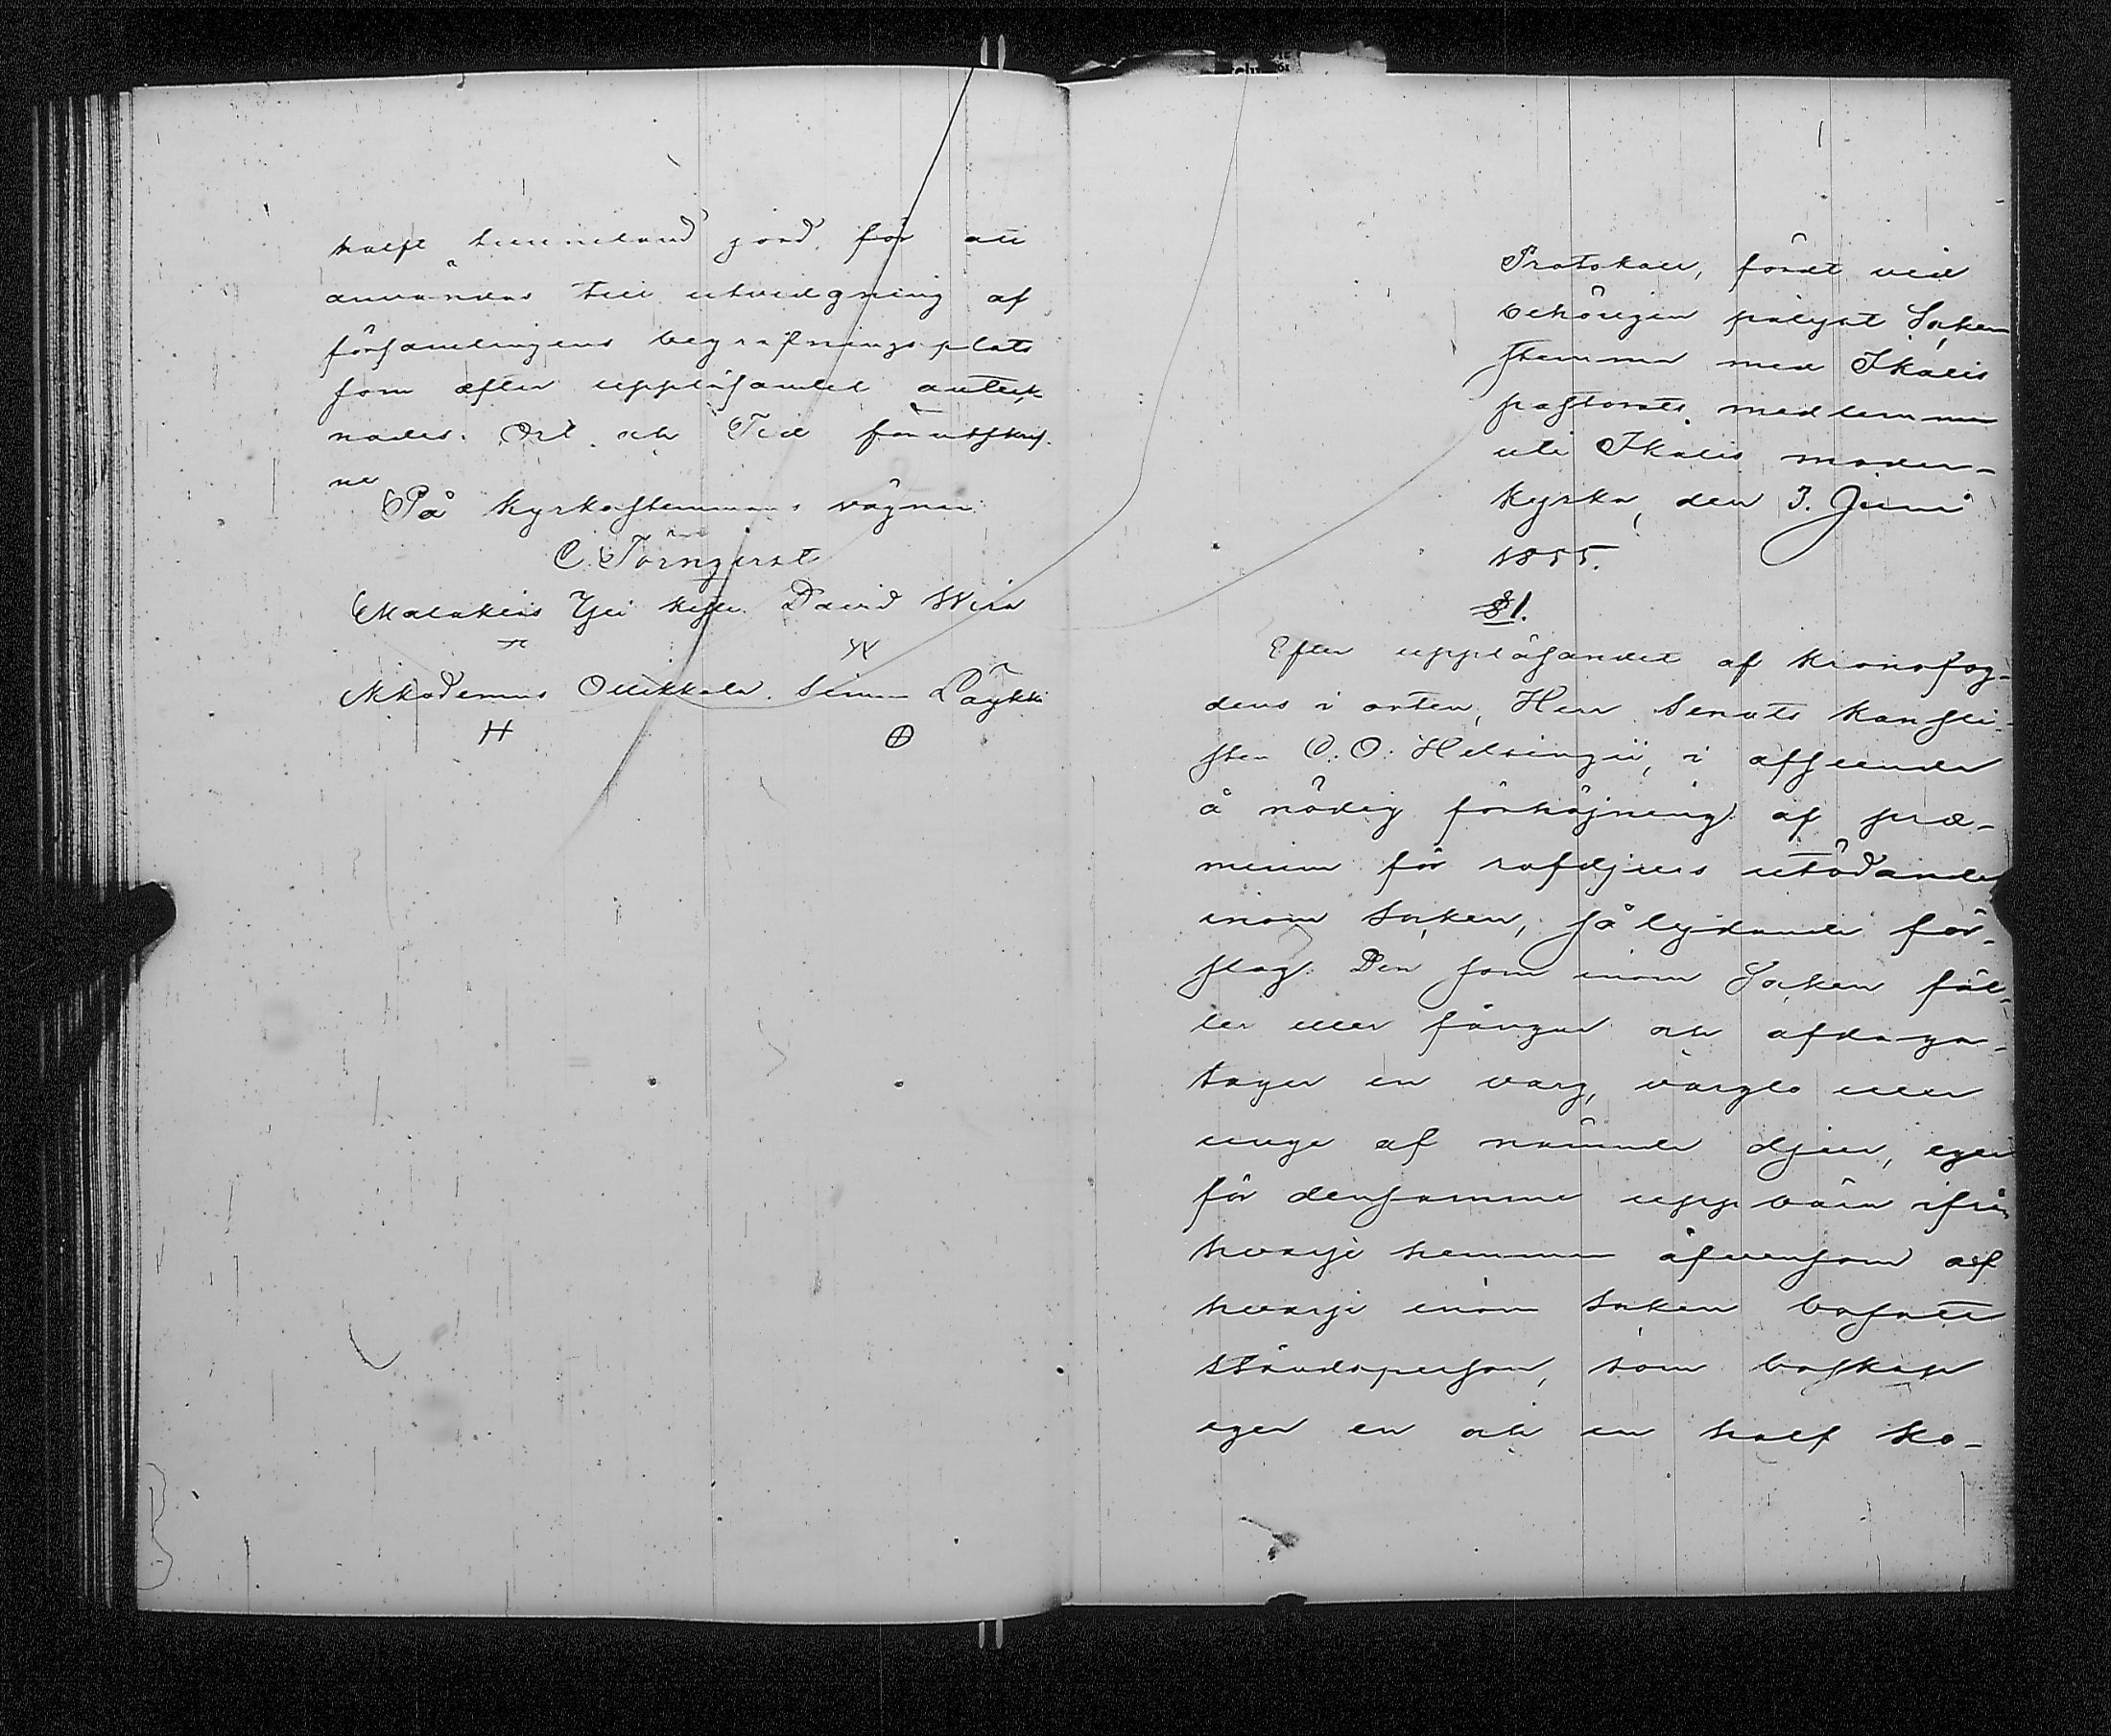 halft tunneland jord, för att
användas till utvidgning af
församlingens begrafningsplats
som efter uppläsandet anteck
nades. Ort och Tid förutskrif.
ne
På Kyrkostemmans vägnar:
C. Törnqvist
Malakias Yli David Wira
Nikodemus Ollikkala. Simon Läykki
H
Protokoll, fördt vid
behörigen pålyst Socken
stemma med Ikalis
pastorats medlemmar
uti Ikalis moder-
kyrka, den 3. Juni
1855.
§1.
Efter uppläsandet af Kronofog-
dens i orten, Herr Senats kansli-
sten C. O. Helsingii, i afseende
å nödig förhöjning af præ-
mium för rofdjurs utödande
inom Socken, så lydande för-
slag: Den som inom Socken fäl-
ler eller fångar och afdaga-
tager en varg, varglo eller
unge af nämnde djur, eger
för densamme uppbära ifrån
hvarje hemman äfvensom af
hvarje inom Socken bosatt
ståndsperson, som boskap
eger en och en half ko-